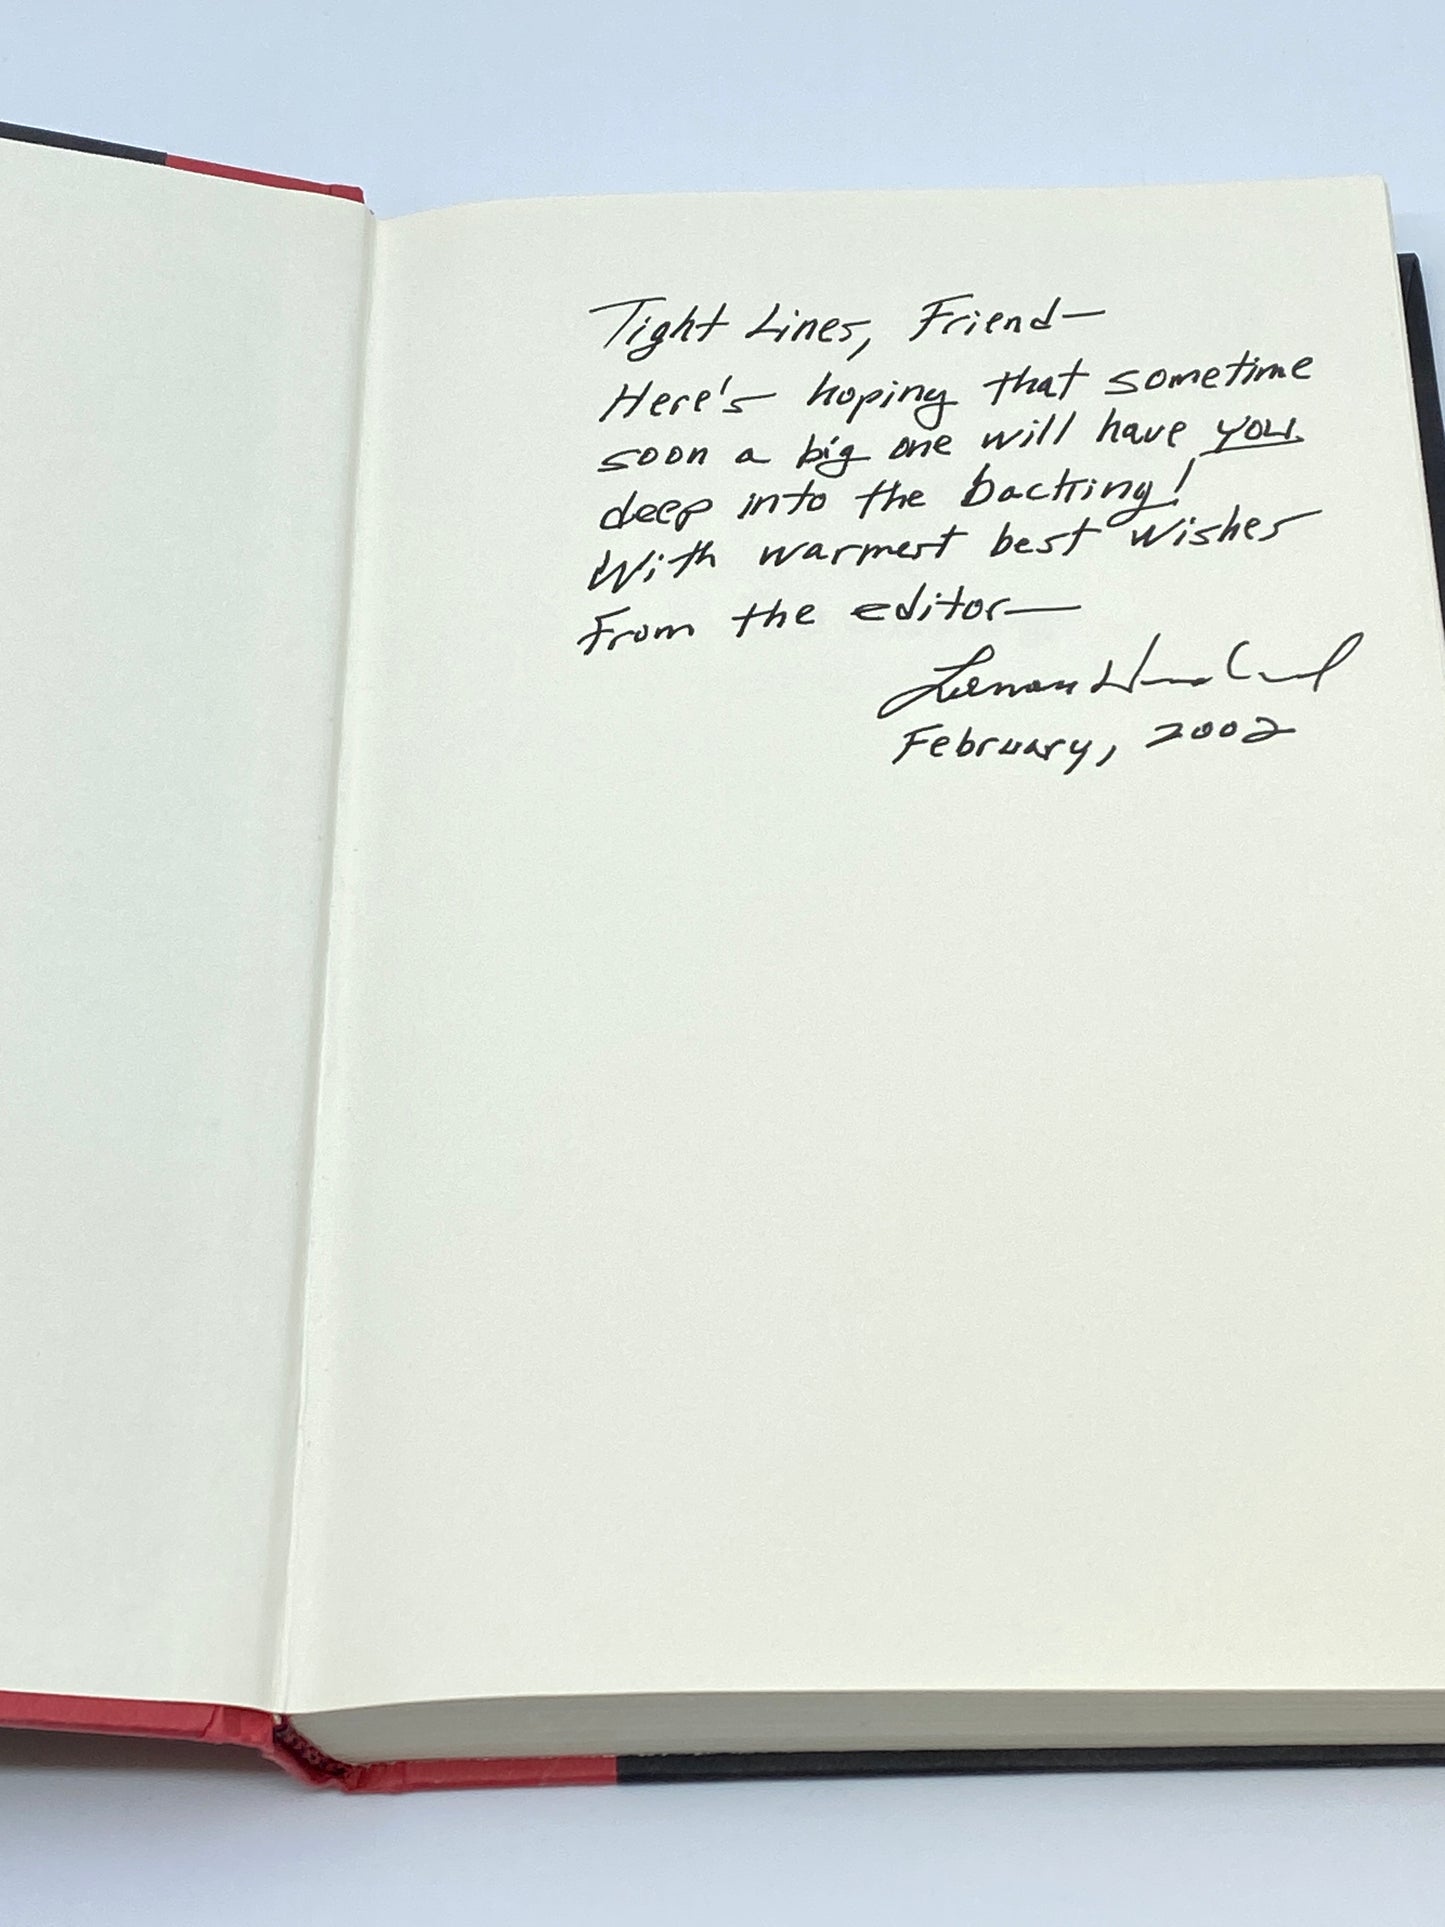 Tight Lines, Friend—
Here's hoping that sometime
soon a big one will have you
deep into the backing!
With warmest best wishes
From the editor—
February, 2002